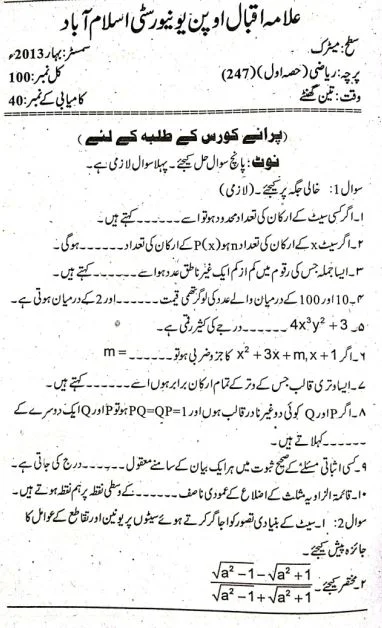 علامہ اقبال اوپن یونیورسٹی اسلام آباد
سطح: میٹرک
سمسٹر: بہار 2013ء
پرچہ: ریاضی (حصہ اول) (247)
کل نمبر: 100
وقت: تین گھنٹے
کامیابی کے نمبر: 40
(پرانے کورس کے طلبہ کے لئے)
نوٹ: پانچ سوال حل کیجئے۔ پہلا سوال لازمی ہے۔
سوال 1: خالی جگہ پر کیجئے۔ (لازمی)
۱۔ اگر کسی سیٹ کے ارکان کی تعداد محدود ہو تو اسے ------ کہتے ہیں۔
۲۔ اگر سیٹ x کے ارکان کی تعداد n ہو تو P(x) کے ارکان کی تعداد ------ ہوگی۔
۳۔ ایسا جملہ جس کی رقوم میں کم از کم ایک غیر ناطق عدد ہو اسے ------ کہتے ہیں۔
۴۔ 10 اور 100 کے درمیان والے عدد کی لوگرتھمی قیمت ------ اور 2 کے درمیان ہوتی ہے۔
۵۔ 4x³y² + 3 ------ درجے کی کثیر رقمی ہے۔
۶۔ اگر x² + 3x + m, x + 1 کا جزو ضربی ہو تو ------ m =
۷۔ ایسا وتری قالب جس کے وتر کے تمام ارکان برابر ہوں اسے ------ کہتے ہیں۔
۸۔ اگر P اور Q کوئی دو غیر نادر قالب ہوں اور PQ=QP=1 ہو تو P اور Q ایک دوسرے کے
------ کہلاتے ہیں۔
۹۔ کسی اثباتی مسئلے کے صحیح ثبوت میں ہر ایک بیان کے سامنے معقول ------ درج کی جاتی ہے۔
۱۰۔ قائمۃ الزاویہ مثلث کے اضلاع کے عمودی ناصف ------ کے وسطی نقطہ پر ہم نقطہ ہوتے ہیں۔
سوال 2: ۱۔ سیٹ کے بنیادی تصور کو اجاگر کرتے ہوئے سیٹوں پر یونین اور تقاطع کے عوامل کا
جائزہ پیش کیجئے۔
۲۔ مختصر کیجئے۔ (√(a² − 1) − √(a² + 1)) / (√(a² − 1) + √(a² + 1))